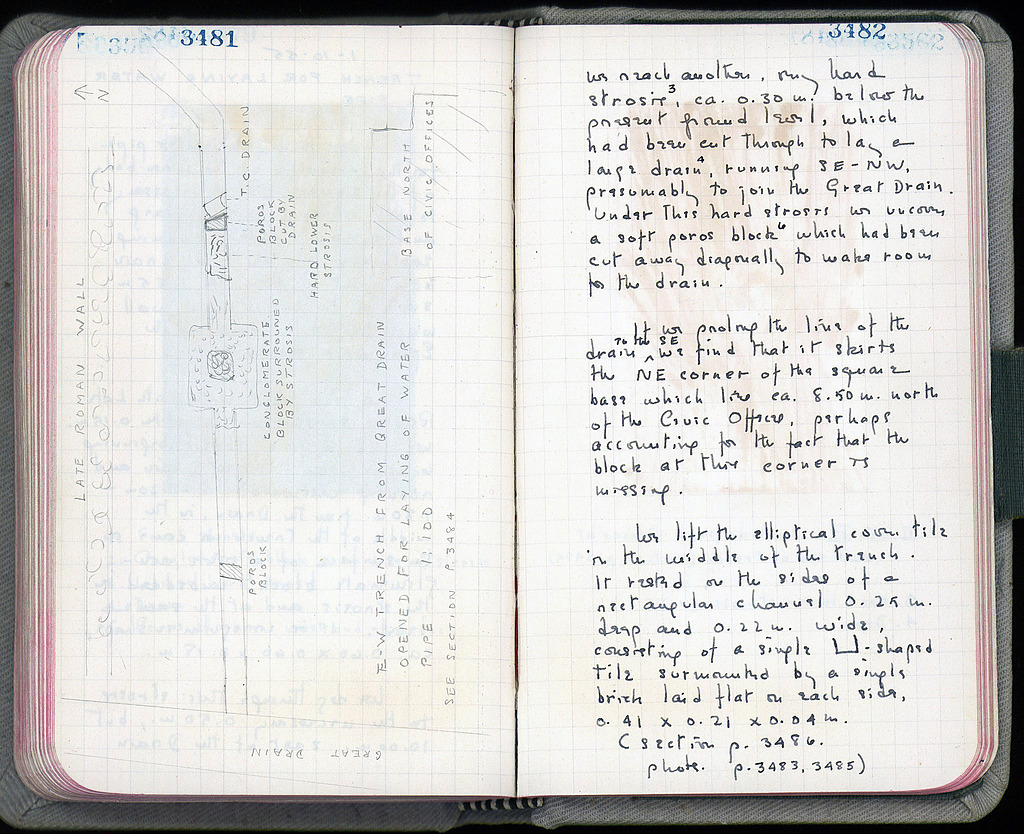 3481
N
LATE ROMAN WALL
T.C. DRAIN
POROS
BLOCK
CUT BY
DRAIN
HARD LOWER
STROSIS
CONGLOMERATE
BLOCK SURROUNDED
BY STROSIS
POROS
BLOCK
BASE NORTH
OF CIVIC OFFICES
E-W TRENCH FROM GREAT DRAIN
OPENED FOR LAYING OF WATER
PIPE 1:100
SEE SECTION P. 3484
GREAT DRAIN
3482
we reach another, very hard
strosis³, ca. 0.30 m. below the
present ground level, which
had been cut through to lay a
large drain⁴, running SE-NW,
presumably to join the Great Drain.
Under this hard strosis we uncover
a soft poros block⁶ which had been
cut away diagonally to make room
for the drain.
If we prolong the line of the
drain to the SE we find that it skirts
the NE corner of the square
base which lies ca. 8.50 m. north
of the Civic Offices, perhaps
accounting for the fact that the
block at this corner is
missing.
We lift the elliptical cover tile
in the middle of the trench.
It rested on the sides of a
rectangular channel 0.25 m.
deep and 0.22 m. wide,
consisting of a single ⊔-shaped
tile surmounted by a single
brick laid flat on each side,
0.41 x 0.21 x 0.04 m.
(section p. 3486.
photo. p. 3483, 3485)